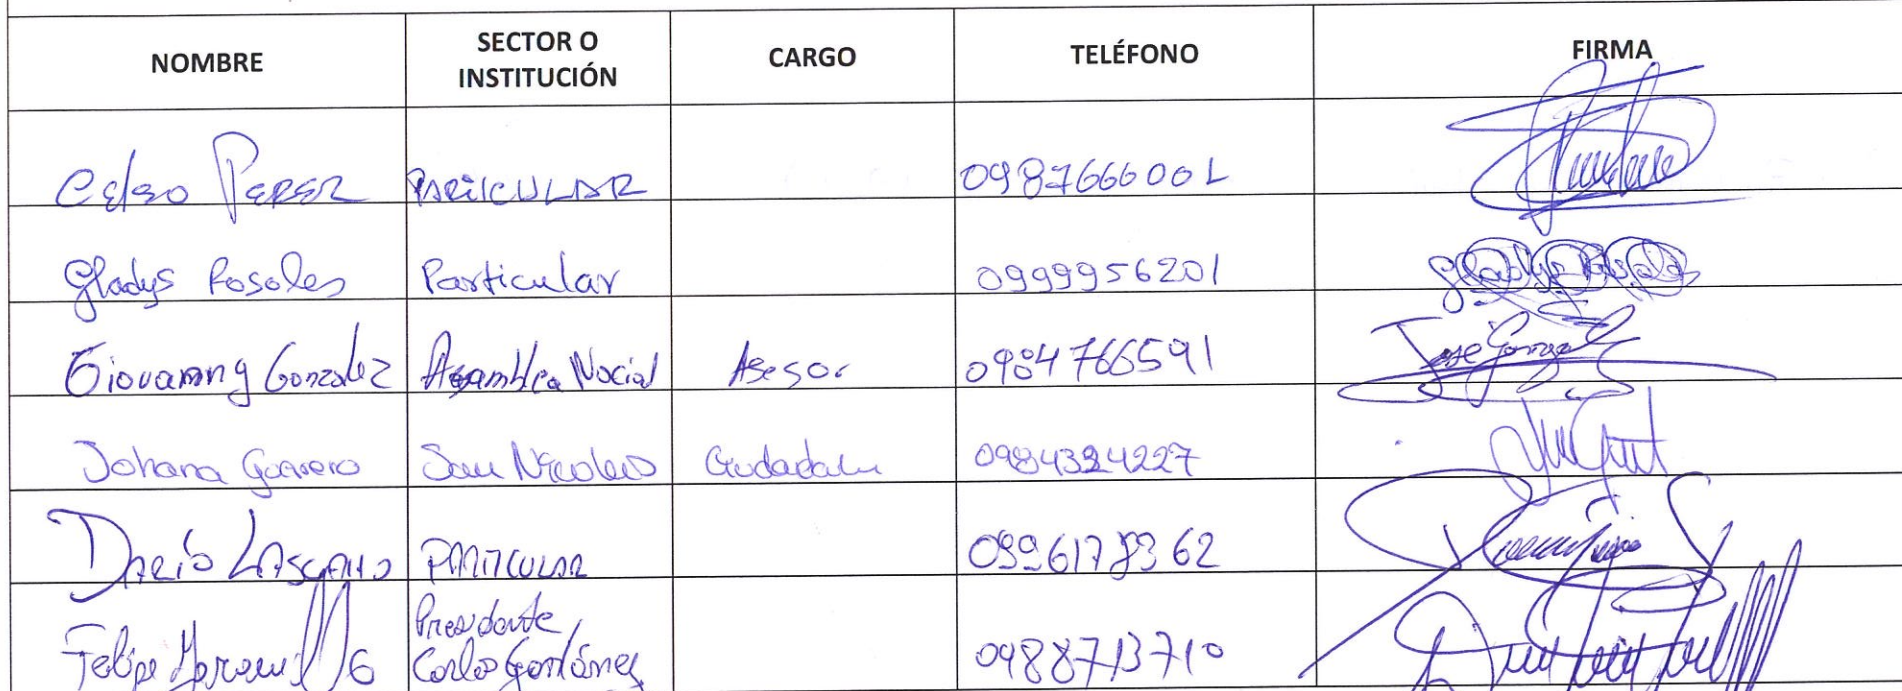 NOMBRE SECTOR O INSTITUCIÓN CARGO TELÉFONO FIRMA
Celso Perez Particular 0987666001
Gladys Rosales Particular 0999956201 Gladys Rosales
Giovanny Gonzalez Asamblea Nacional Asesor 0984766591 Jose Gonzal
Johana Guerrero San Nicolas 0984324227
Dario Lascano Particular 0996178362
Felipe Presidente Carlos 0988713710